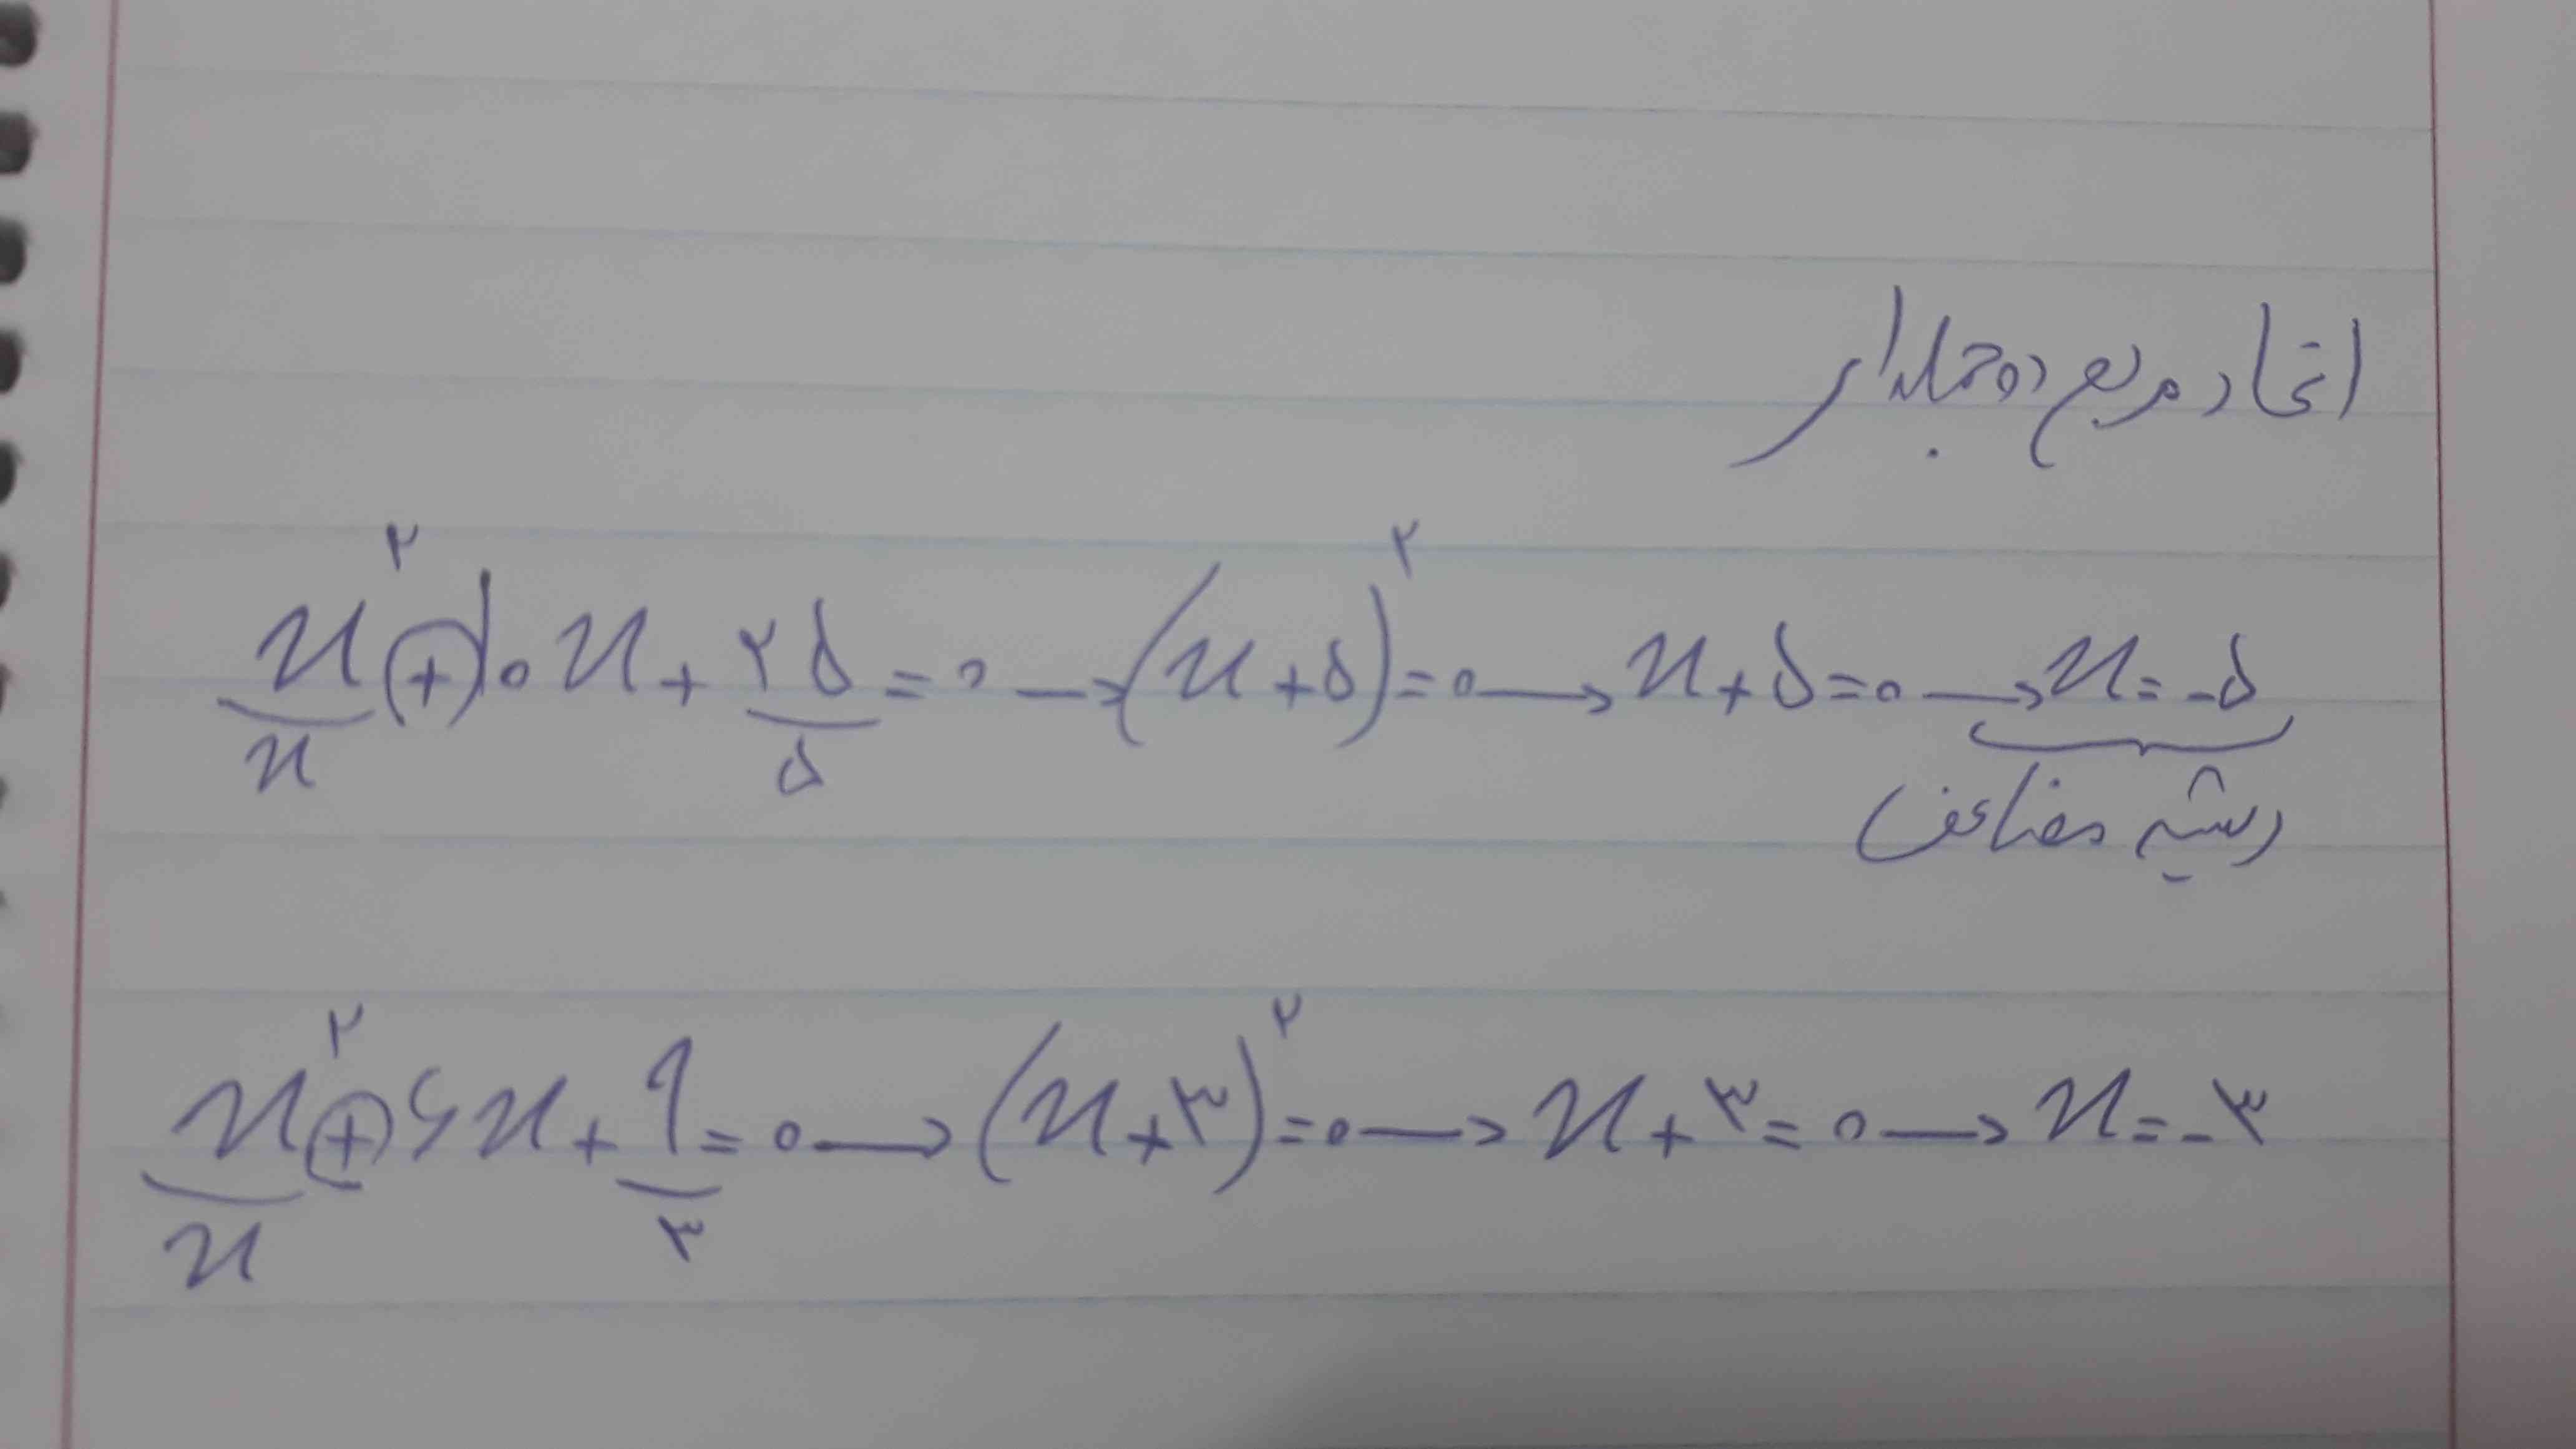 اتحاد مربع دو جمله‌ای
x² + ۱۰x + ۲۵ = ۰ → (x + ۵)² = ۰ → x + ۵ = ۰ → x = -۵
x ۵
ریشه مضاعف
x² + ۶x + ۹ = ۰ → (x + ۳)² = ۰ → x + ۳ = ۰ → x = -۳
x ۳